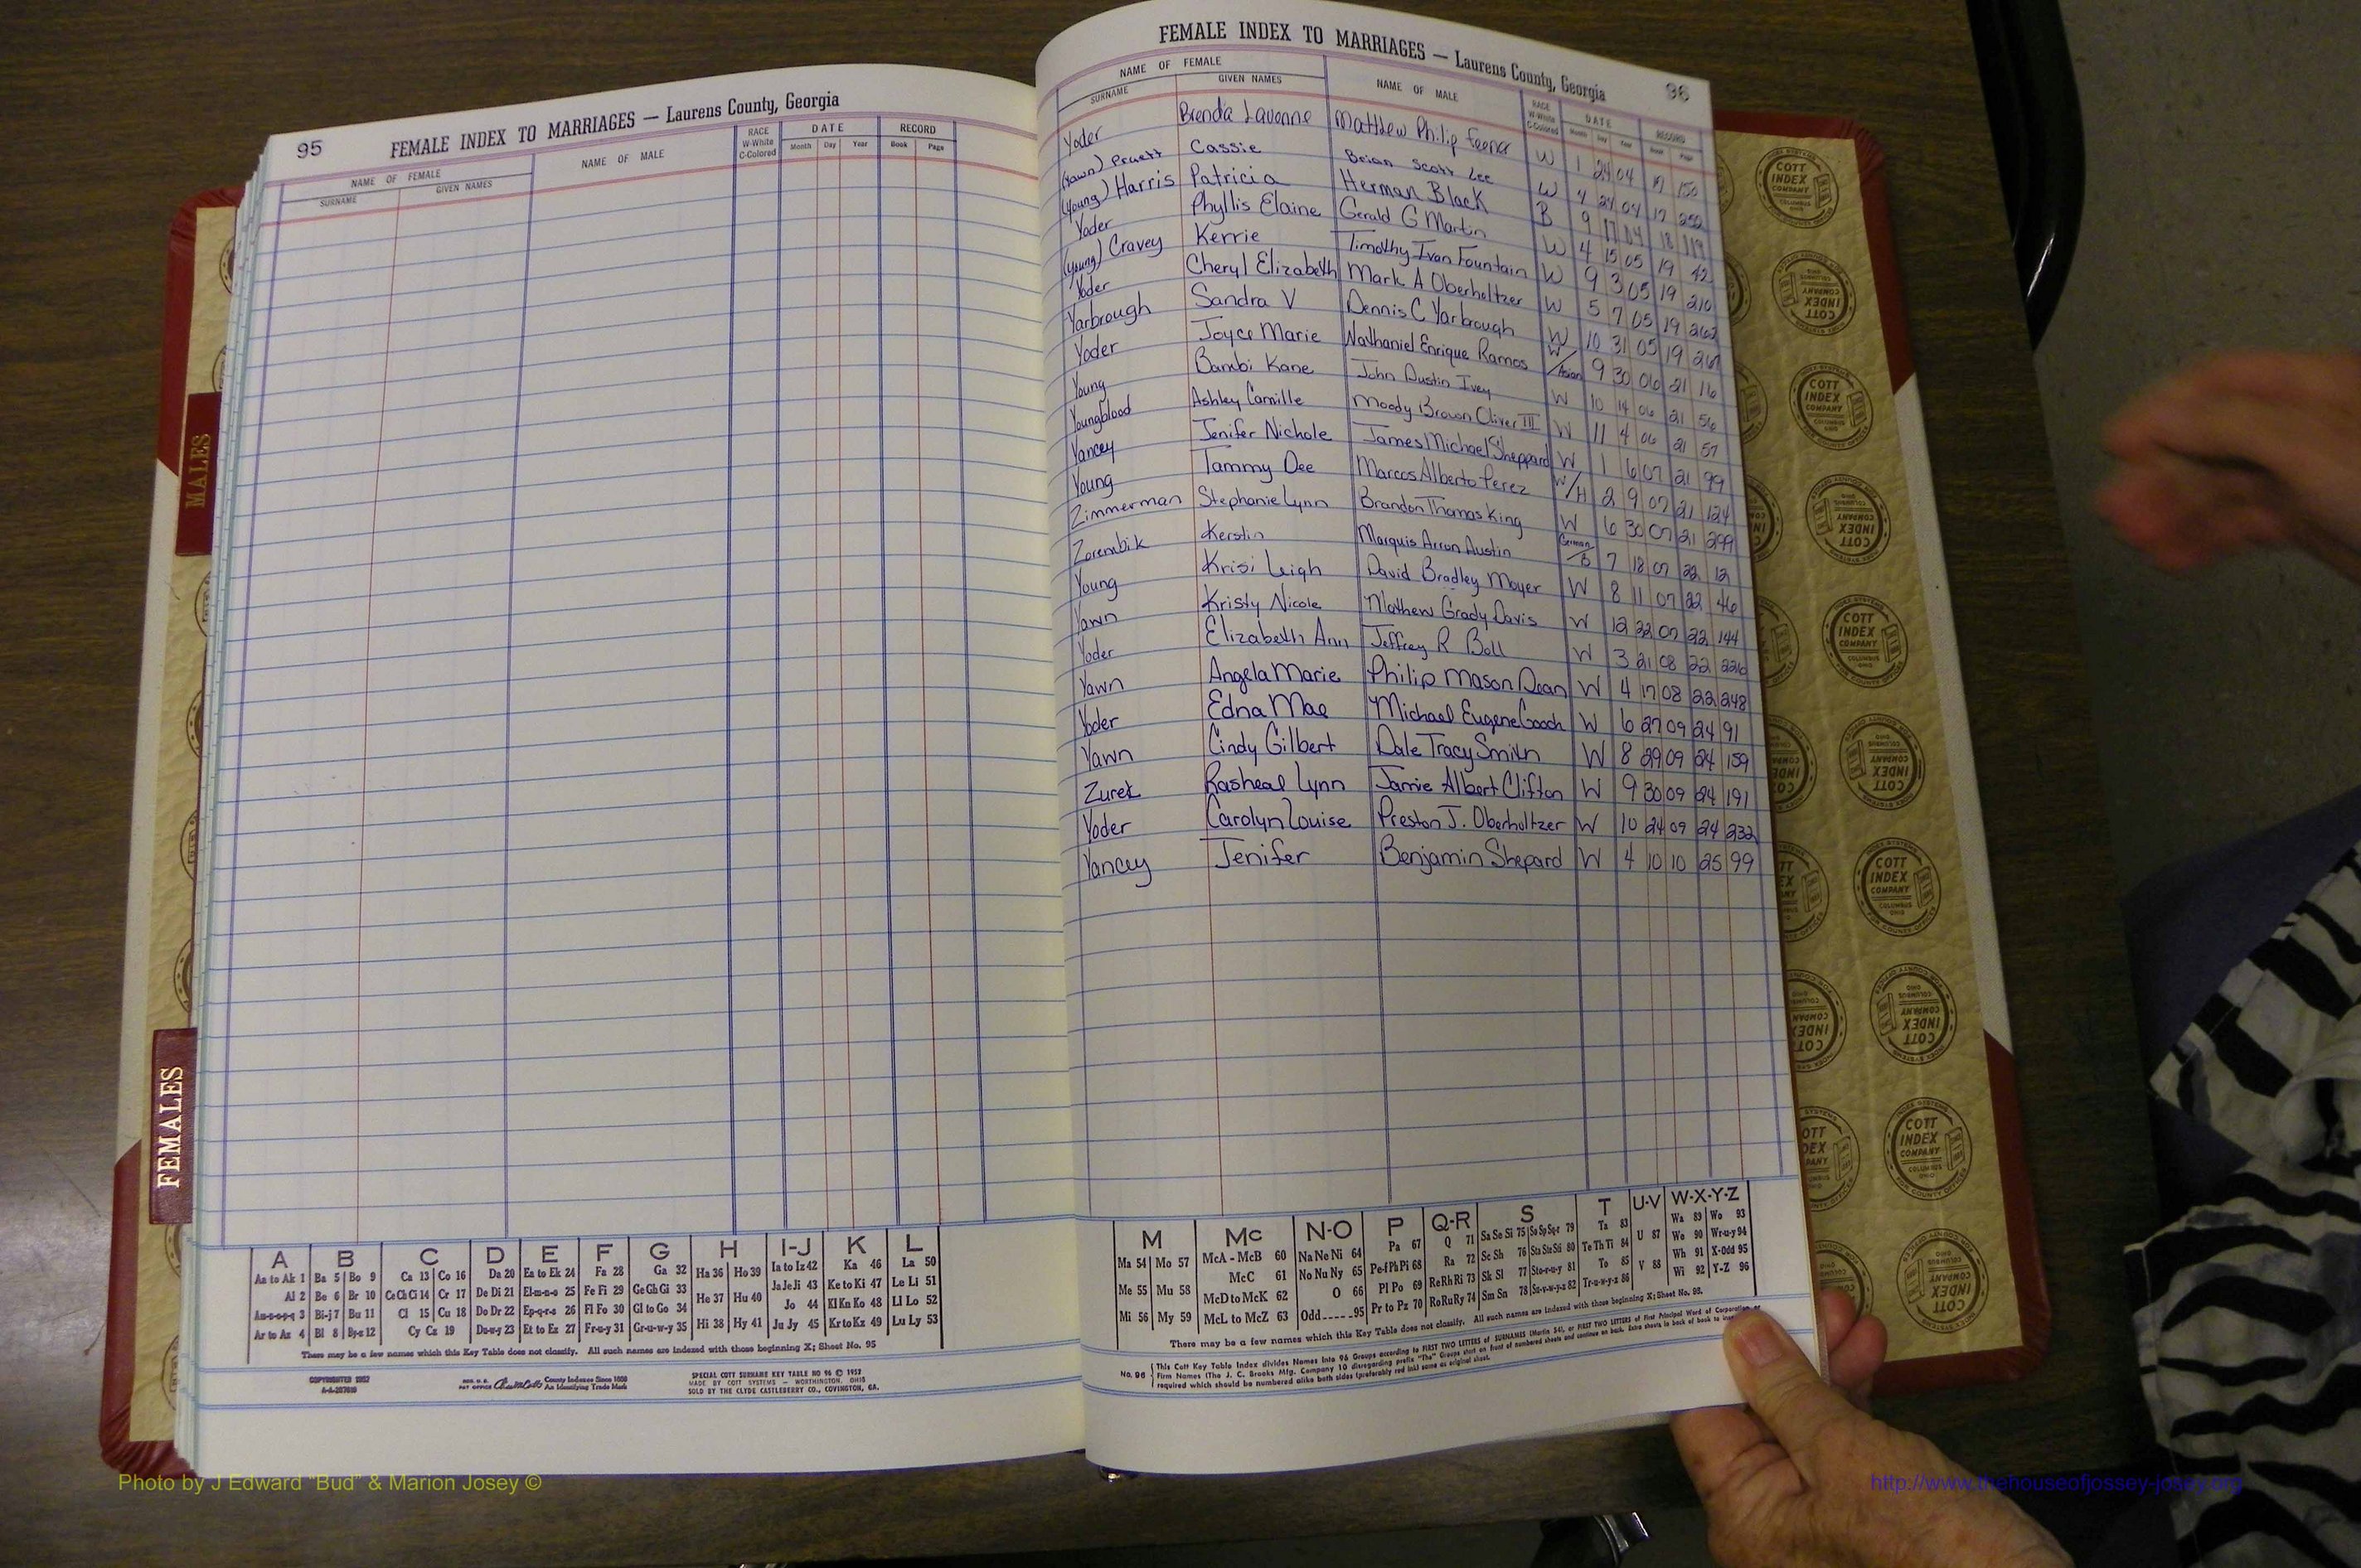 95 FEMALE INDEX TO MARRIAGES — Laurens County, Georgia
NAME OF FEMALE NAME OF MALE RACE W-White C-Colored DATE RECORD
SURNAME GIVEN NAMES Month Day Year Book Page
A B C D E F G H I-J K L
Aa to Ak 1 Ba 5 Bo 9 Ca 13 Co 16 Da 20 Ea to Ek 24 Fa 28 Ga 32 Ha 36 Ho 39 Ia to Iz 42 Ka 46 La 50
Al 2 Be 6 Br 10 Ce Ch Ci 14 Cr 17 De Di 21 El-m-n-o 25 Fe Fi 29 Ge Gh Gi 33 He 37 Hu 40 Ja Je Ji 43 Ke to Ki 47 Le Li 51
An-o-p-q 3 Bi-j 7 Bu 11 Cl 15 Cu 18 Do Dr 22 Ep-q-r-s 26 Fl Fo 30 Gl to Go 34 Hi 38 Hy 41 Jo 44 Kl Kn Ko 48 Ll Lo 52
Ar to Az 4 Bl 8 By-z 12 Cy Cz 19 Du-w-y 23 Et to Ez 27 Fr-u-y 31 Gr-u-w-y 35 Ju Jy 45 Kr to Kz 49 Lu Ly 53
There may be a few names which this Key Table does not classify. All such names are indexed with those beginning X; Sheet No. 95
COPYRIGHTED 1952
County Indexes Since 1888
An Identifying Trade Mark
SPECIAL COTT SURNAME KEY TABLE NO 96 © 1952
MADE BY COTT SYSTEMS — WORTHINGTON, OHIO
SOLD BY THE CLYDE CASTLEBERRY CO., COVINGTON, GA.
FEMALE INDEX TO MARRIAGES — Laurens County, Georgia 96
NAME OF FEMALE NAME OF MALE RACE W-White C-Colored DATE RECORD
SURNAME GIVEN NAMES Month Day Year Book Page
Yoder Brenda Lavonne Matthew Philip W 1 24 04 17 150
(Yawn) Pruett Cassie Brian Scott Lee W 4 24 04 17 252
(Young) Harris Patricia Herman Black B 9 17 04 18 119
Yoder Phyllis Elaine Gerald G Martin W 4 15 05 19 42
(Young) Cravey Kerrie Timothy Ivan Fountain W 9 3 05 19 210
Yoder Cheryl Elizabeth Mark A Oberholtzer W 5 7 05 19 262
Yarbrough Sandra V Dennis C Yarbrough W 10 31 05 19 267
Yoder Joyce Marie Nathaniel Enrique Ramos W/Asian 9 30 06 21 16
Young Bambi Kane John Dustin Ivey W 10 14 06 21 56
Youngblood Ashley Camille Moody Brown Oliver III W 11 4 06 21 57
Yancey Jenifer Nichole James Michael Sheppard W 1 6 07 21 99
Young Tammy Dee Marcos Alberto Perez W/H 2 9 07 21 124
Zimmerman Stephanie Lynn Brandon Thomas King W 6 30 07 21 299
Zarembik Kerstin Marquis Arron Austin German/B 7 18 07 22 12
Young Krisi Leigh David Bradley Moyer W 8 11 07 22 46
Yawn Kristy Nicole Mathew Grady Davis W 12 22 07 22 144
Yoder Elizabeth Ann Jeffrey R Boll W 3 21 08 22 226
Yawn Angela Marie Philip Mason Dean W 4 17 08 22 248
Yoder Edna Mae Michael Eugene Gooch W 6 27 09 24 91
Yawn Cindy Gilbert Dale Tracy Smith W 8 29 09 24 159
Zurek Rasheal Lynn Jamie Albert Clifton W 9 30 09 24 191
Yoder Carolyn Louise Preston J. Oberholtzer W 10 24 09 24 232
Yancey Jenifer Benjamin Shepard W 4 10 10 25 99
M Mc N-O P Q-R S T U-V W-X-Y-Z
Ma 54 Mo 57 McA - McB 60 Na Ne Ni 64 Pa 67 Q 71 Sa Se Si 75 So Sp Sq-r 79 Ta 83 U 87 Wa 89 Wo 93
Me 55 Mu 58 McC 61 No Nu Ny 65 Pe-f Ph Pi 68 Ra 72 Sc Sh 76 Sta Ste Sti 80 Te Th Ti 84 V 88 We 90 Wr-u-y 94
Mi 56 My 59 McD to McK 62 O 66 Pl Po 69 Re Rh Ri 73 Sk Sl 77 Sto-r-u-y 81 To 85 Wh 91 X-Odd 95
McL to McZ 63 Odd 95 Pr to Pz 70 Ro Ru Ry 74 Sm Sn 78 Su-v-w-y-z 82 Tr-u-w-y-z 86 Wi 92 Y-Z 96
There may be a few names which this Key Table does not classify. All such names are indexed with those beginning X; Sheet No. 95.
No. 96 This Cott Key Table Index divides Names into 96 Groups according to FIRST TWO LETTERS of SURNAMES (Martin 54), or FIRST TWO LETTERS of First Principal Word of Corporation or
Firm Names (The J. C. Brooks Mfg. Company 10 disregarding prefix "The" Groups start on front of numbered sheets and continue on back. Extra sheets in back of book to
required which should be numbered alike both sides (preferably red ink) same as original sheet.
MALES
FEMALES
COTT INDEX COMPANY COLUMBUS OHIO
INDEX SYSTEMS FOR COUNTY OFFICES
Photo by J Edward "Bud" & Marion Josey ©
http://www.thehouseofjossey-josey.org